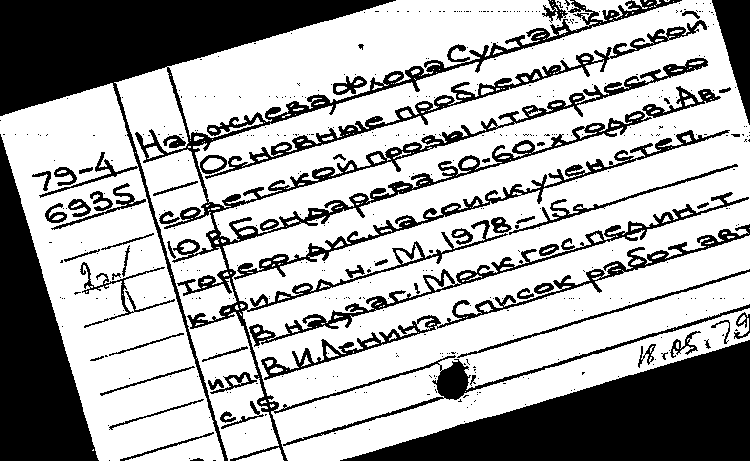 Наджиева, Флора Султан кызы
Основные проблемы русской
советской прозы и творчество
Ю.В.Бондарева 50-60-х годов: Ав-
тореф. дис. на соиск. учен. степ.
к. филол. н. - М., 1978. - 15с.
В надзаг.: Моск. гос. пед. ин-т
им. В.И.Ленина. Список работ авт.
с. 15.
79-4
6935
18.05.79